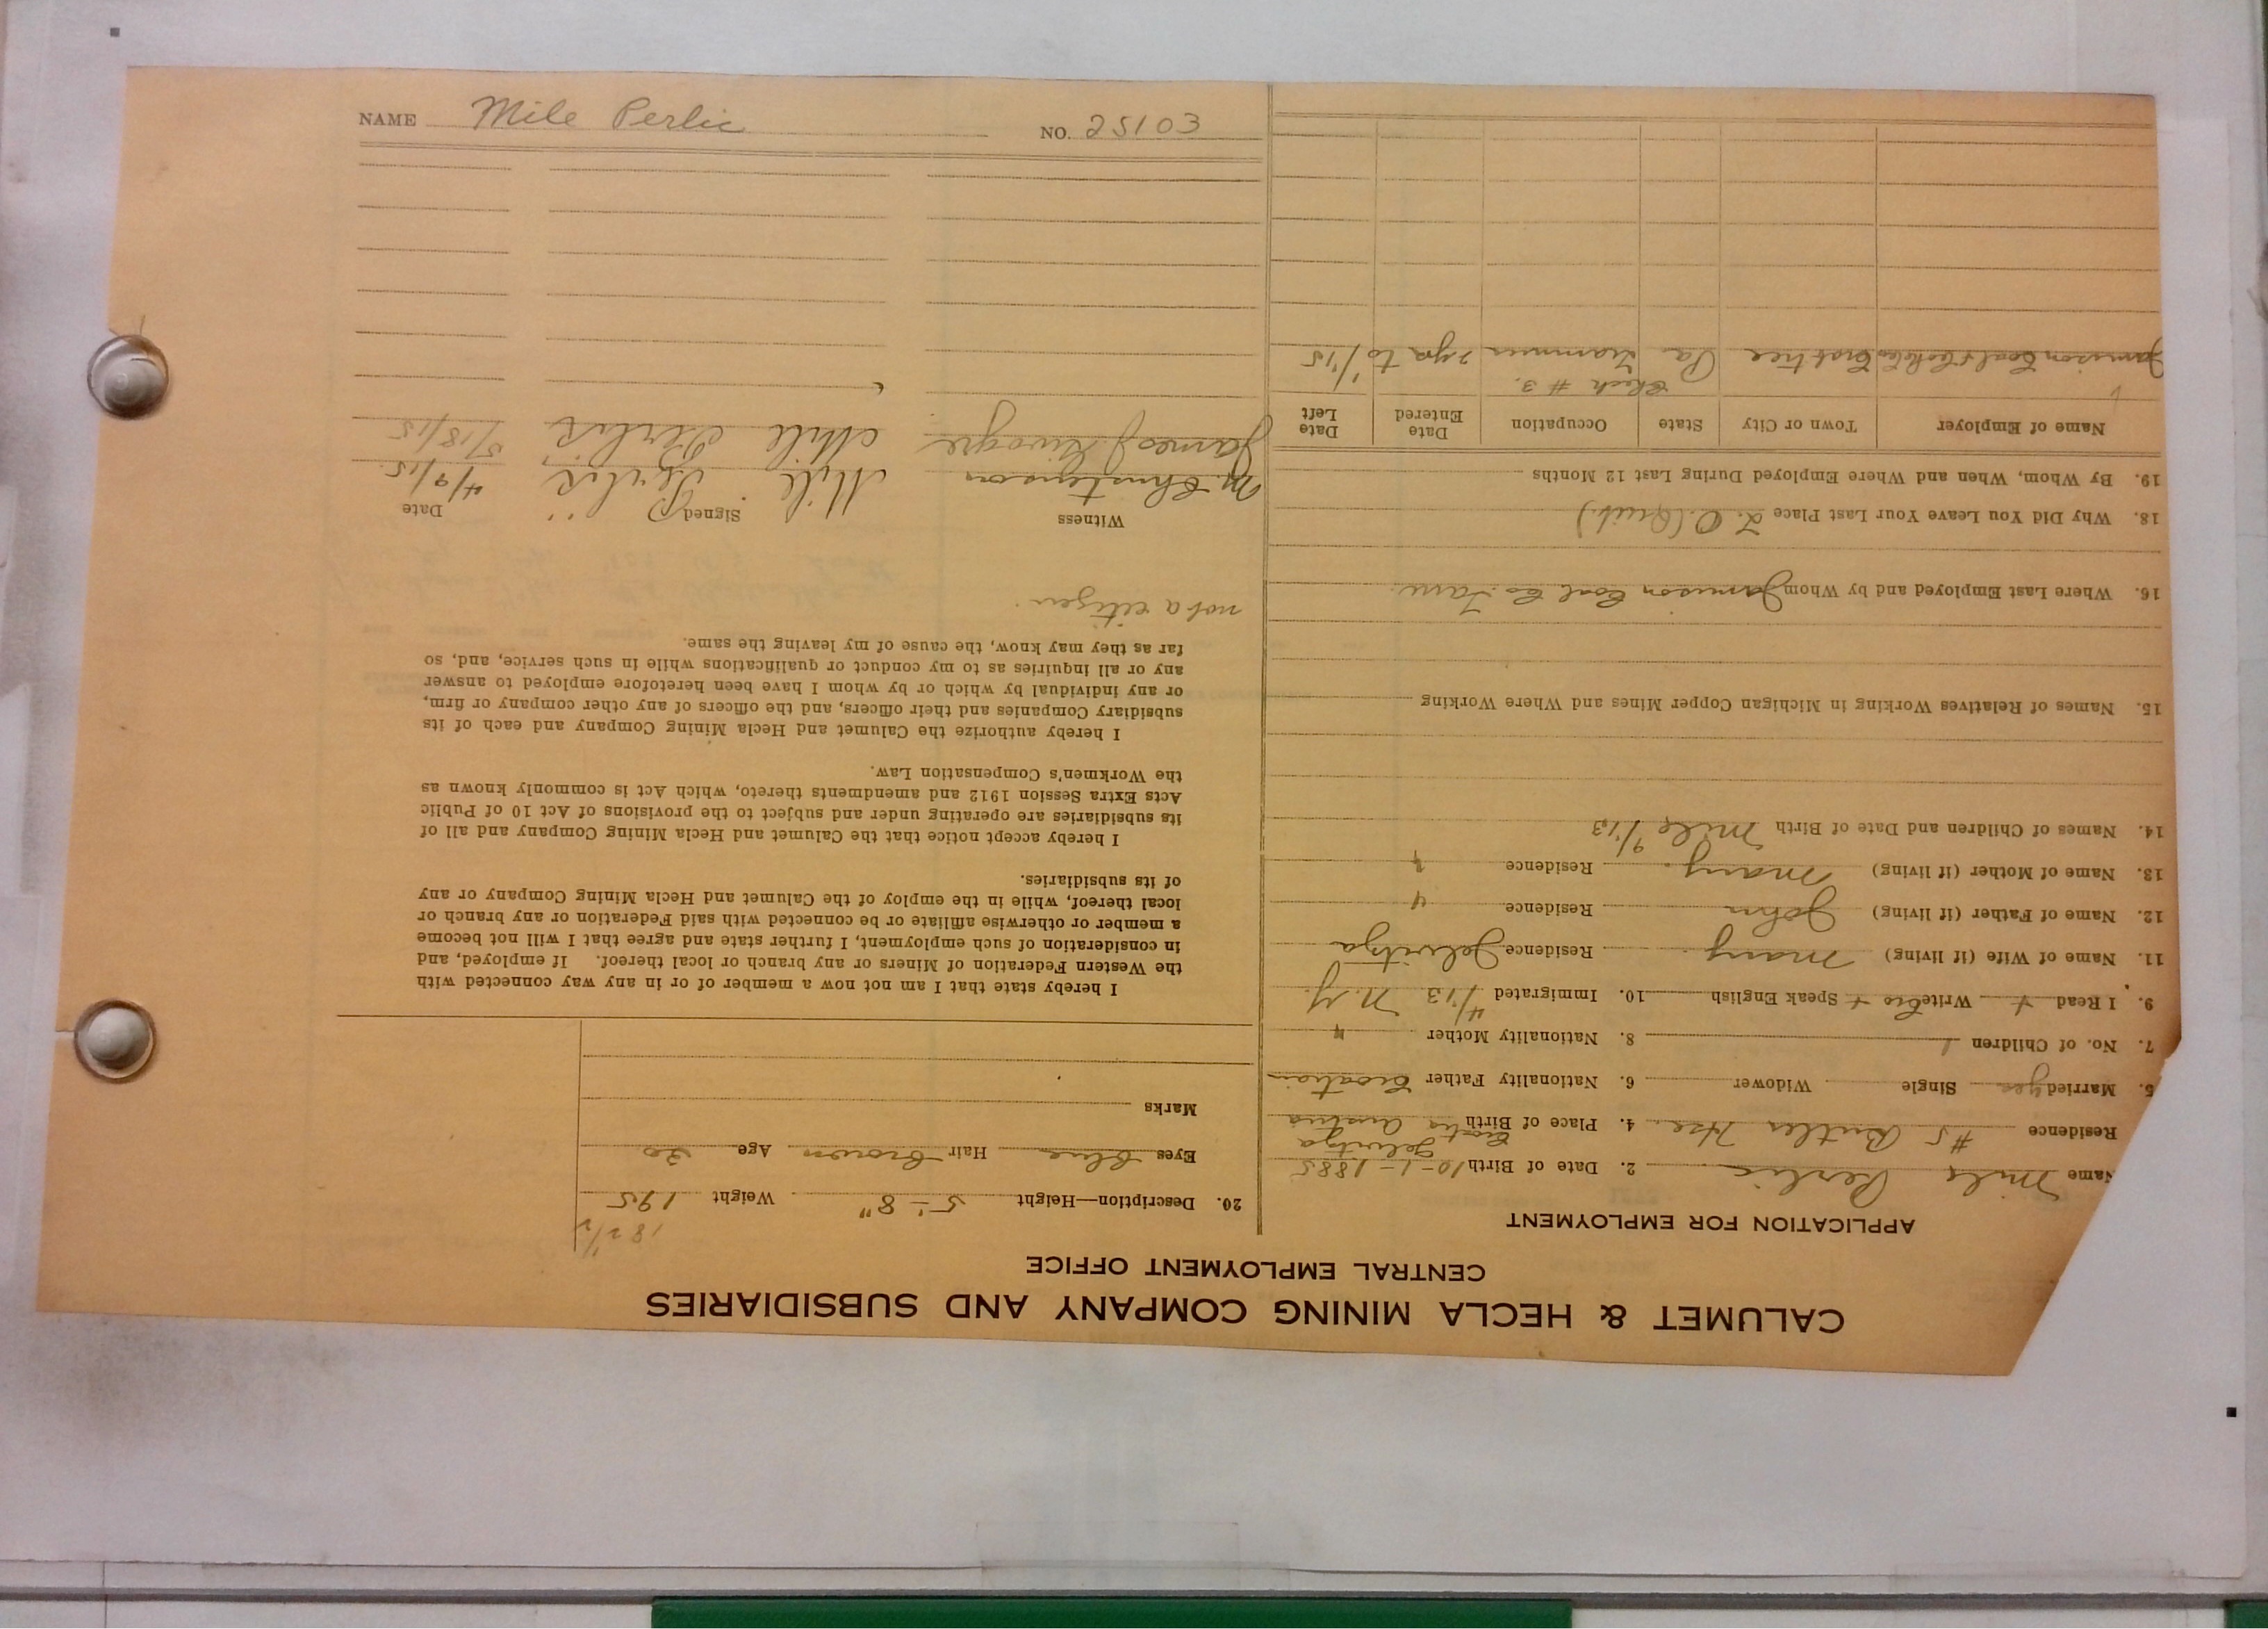 NAME Mile Perlic NO. 25103
CALUMET & HECLA MINING COMPANY AND SUBSIDIARIES
CENTRAL EMPLOYMENT OFFICE
APPLICATION FOR EMPLOYMENT
Name Mile Perlic 2. Date of Birth 10-1-1885
Jelvitza
Residence #5 Butler Hse. 4. Place of Birth Croatia Austria
5. Married yes Single Widower 6. Nationality Father Croatian
7. No. of Children 1 8. Nationality Mother "
9. I Read + Write Cro + Speak English 10. Immigrated 4/13 N.Y.
11. Name of Wife (if living) Mary Residence Jelvitza
12. Name of Father (if living) John Residence "
13. Name of Mother (if living) Mary Residence "
14. Names of Children and Date of Birth Mile 9/1/13
15. Names of Relatives Working in Michigan Copper Mines and Where Working
16. Where Last Employed and by Whom Jamison Coal Co.
18. Why Did You Leave Your Last Place L.O. (Quit.)
19. By Whom, When and Where Employed During Last 12 Months
Name of Employer Town or City State Occupation Date Entered Date Left
Check #3.
Jamison Coal & Coke Co Crabtree Pa Trammer 2 yr to 1/15
182 1/2
20. Description—Height 5'-8" Weight 195
Eyes blue Hair brown Age 30
Marks
I hereby state that I am not now a member of or in any way connected with
the Western Federation of Miners or any branch or local thereof. If employed, and
in consideration of such employment, I further state and agree that I will not become
a member or otherwise affiliate or be connected with said Federation or any branch or
local thereof, while in the employ of the Calumet and Hecla Mining Company or any
of its subsidiaries.
I hereby accept notice that the Calumet and Hecla Mining Company and all of
its subsidiaries are operating under and subject to the provisions of Act 10 of Public
Acts Extra Session 1912 and amendments thereto, which Act is commonly known as
the Workmen's Compensation Law.
I hereby authorize the Calumet and Hecla Mining Company and each of its
subsidiary Companies and their officers, and the officers of any other company or firm,
or any individual by which or by whom I have been heretofore employed to answer
any or all inquiries as to my conduct or qualifications while in such service, and, so
far as they may know, the cause of my leaving the same.
not a citizen.
Witness Signed Date
M. Christenson Mile Perlic 4/9/15.
James J. Mile Perlic 5/18/15